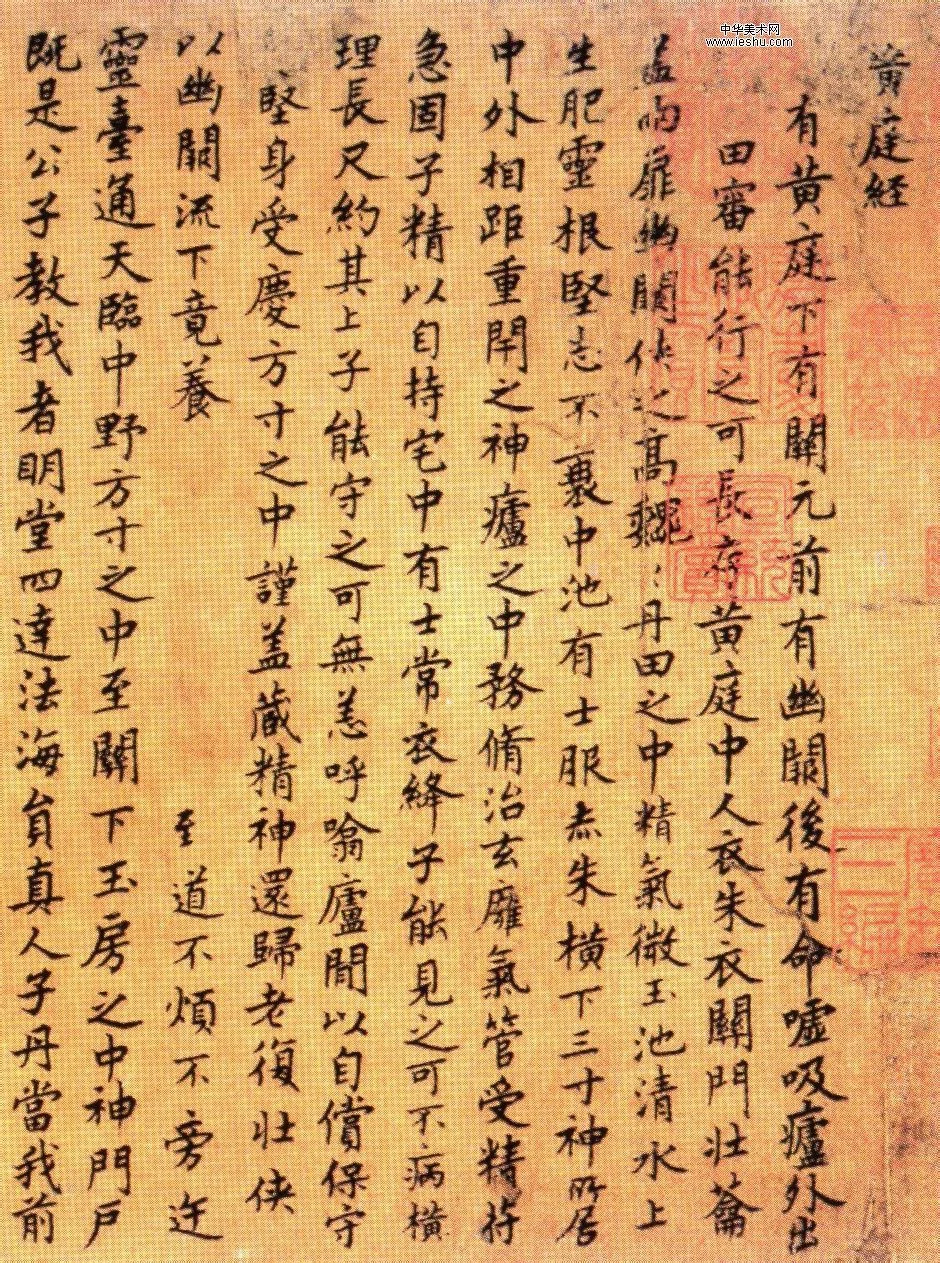 中华美术网
www.ieshu.com
黄庭経
有黄庭下有關元前有幽闕後有命嘘吸廬外出
田審能行之可長存黄庭中人衣朱衣關門壯蘥
盖兩扉幽闕俠之高巍〻丹田之中精氣微玉池清水上
生肥靈根堅志不衰中池有士服赤朱橫下三寸神所居
中外相距重閇之神廬之中務脩治玄廱氣管受精符
急固子精以自持宅中有士常衣絳子能見之可不病橫
理長尺約其上子能守之可無恙呼噏廬間以自償保守
堅身受慶方寸之中謹盖藏精神還歸老復壯俠
以幽闕流下竟養 至道不煩不旁迕
靈臺通天臨中野方寸之中至關下玉房之中神門戶
既是公子教我者明堂四達法海員真人子丹當我前